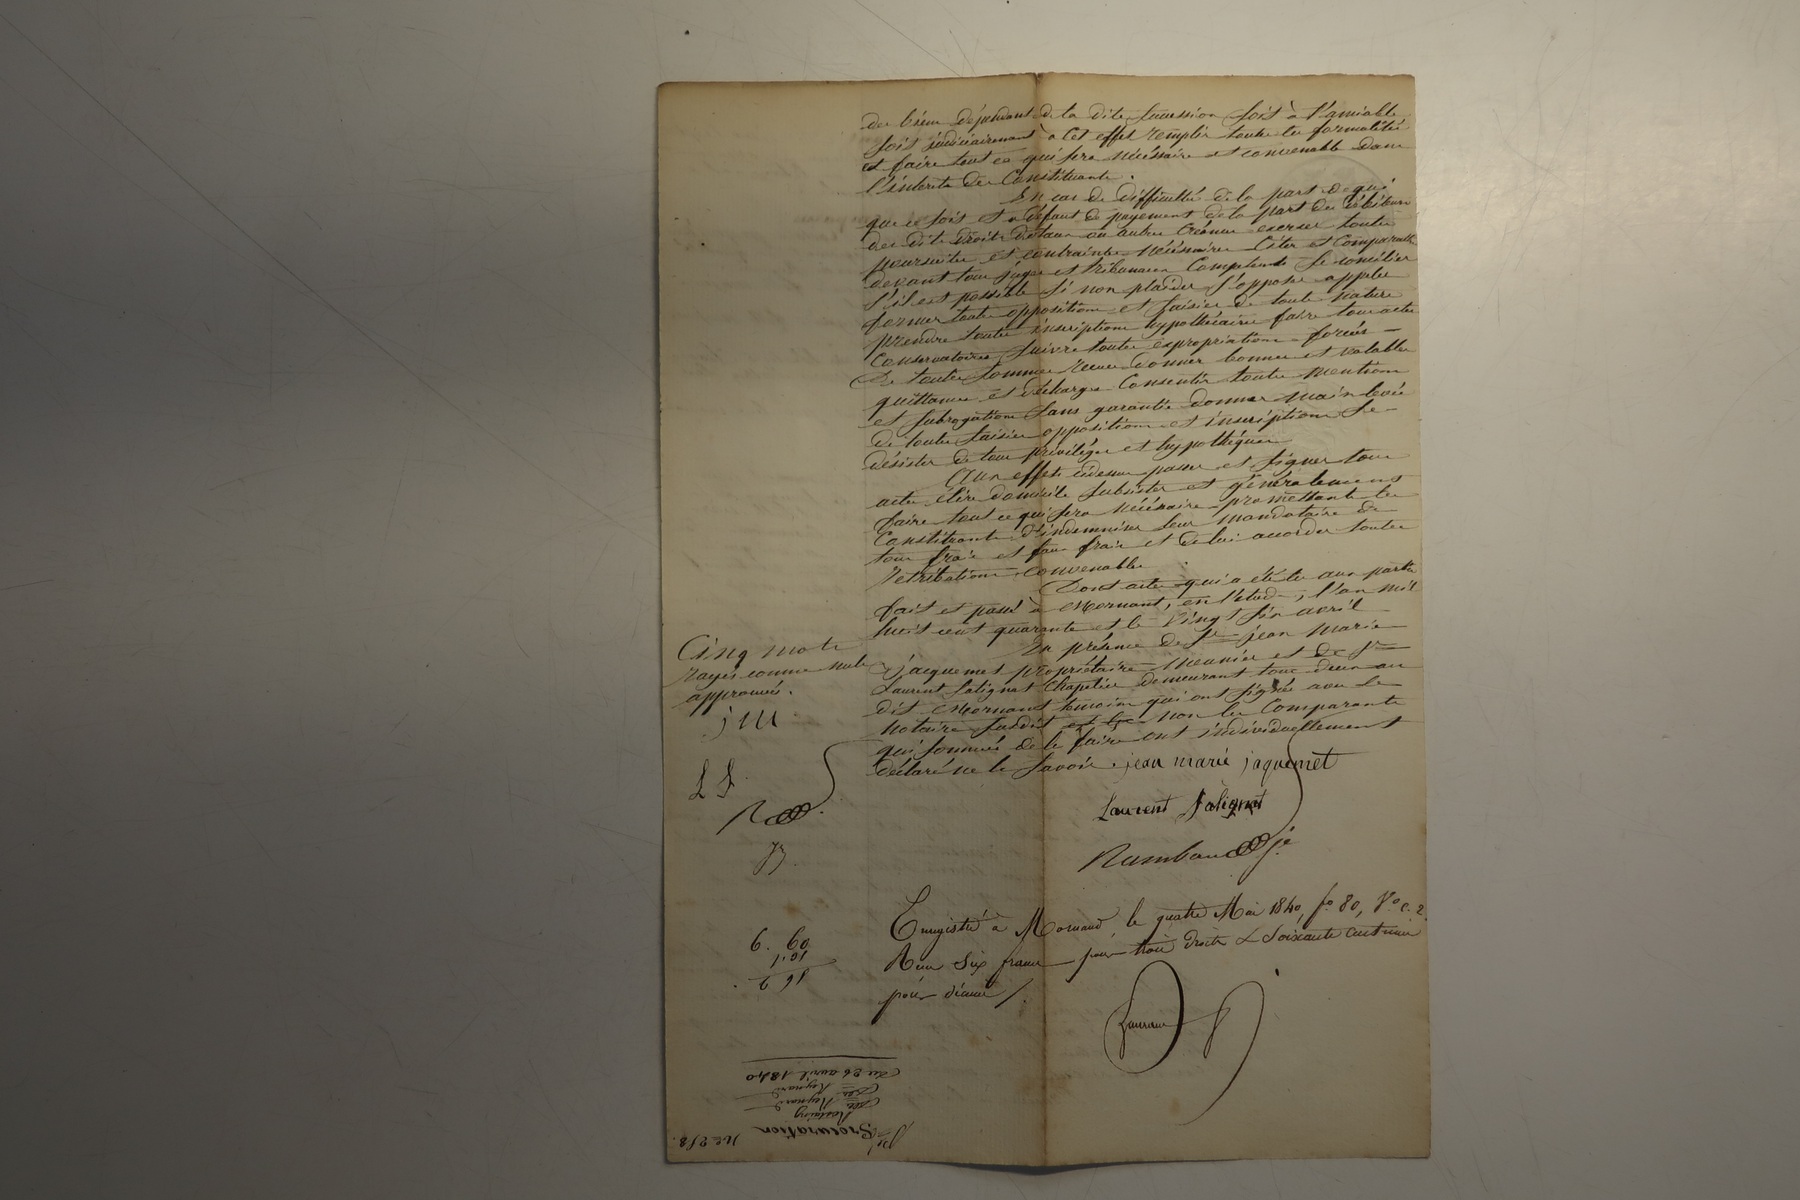 des biens dépendant de la dite succession soit à l'amiable
soit judiciairement à cet effet remplir toutes les formalités
et faire tout ce qui sera nécessaire et convenable dans
l'intérêts des Constituants.
En cas de difficultés de la part de qui
que ce soit et à défaut de payement de la part des débiteurs
des dits droits dotaux ou autres créances exercer toutes
poursuites et contraintes nécéssaires Citer et Comparaître
devant tous juges et tribunaux Compétents Se concilier
s'il est possible Si non plaider s'opposer appeler
former toutes oppositions et saisies de toute nature
prendre toutes inscriptions hypothécaires faire tous actes
Conservatoires Suivre toutes expropriations forcées
De toutes sommes reçues donner bonnes et valables
quittances et décharges Consentir toutes mentions
et subrogations Sans garantie donner main levée
de toutes saisies oppositions et inscriptions Se
désister de tous privilèges et hypothèques
Aux effets cidessus passer et signer tous
actes élire domicile Substituer et généralement
faire tout ce qui sera nécéssaire promettant les
Constituants d'indemniser leur mandataire de
tous frais et faux frais et de lui accorder toutes
retributions convenables.
Dont acte qui a été lu aux parties
fait et passé à Mornant, en l'étude, l'an mil
huit cent quarante et le Vingt Six avril
En présence de Sr jean Marie
jacquemet propriétaire Meunier et de Sr
Laurent Salignat Chapelier demeurant tous deux au
dit Mornant temoins qui ont signés avec le
Notaire susdit et les non les Comparants
qui sommés de le faire ont individuellement
déclaré ne le savoir. jean marie jaquemet
Laurent Salignat
Rambaud je
Cinq mots
rayés comme nuls
approuvés.
j M
L S
R
Enregistré à Mornand, le quatre Mai 1840, fo 80, Vo c. 2.
Reçu Six francs pour trois droits & Soixante centimes
pour décime /.
6. 60
1.01
7 61
No 258.
Procuration
Mlle Reynard
du 26 avril 1840